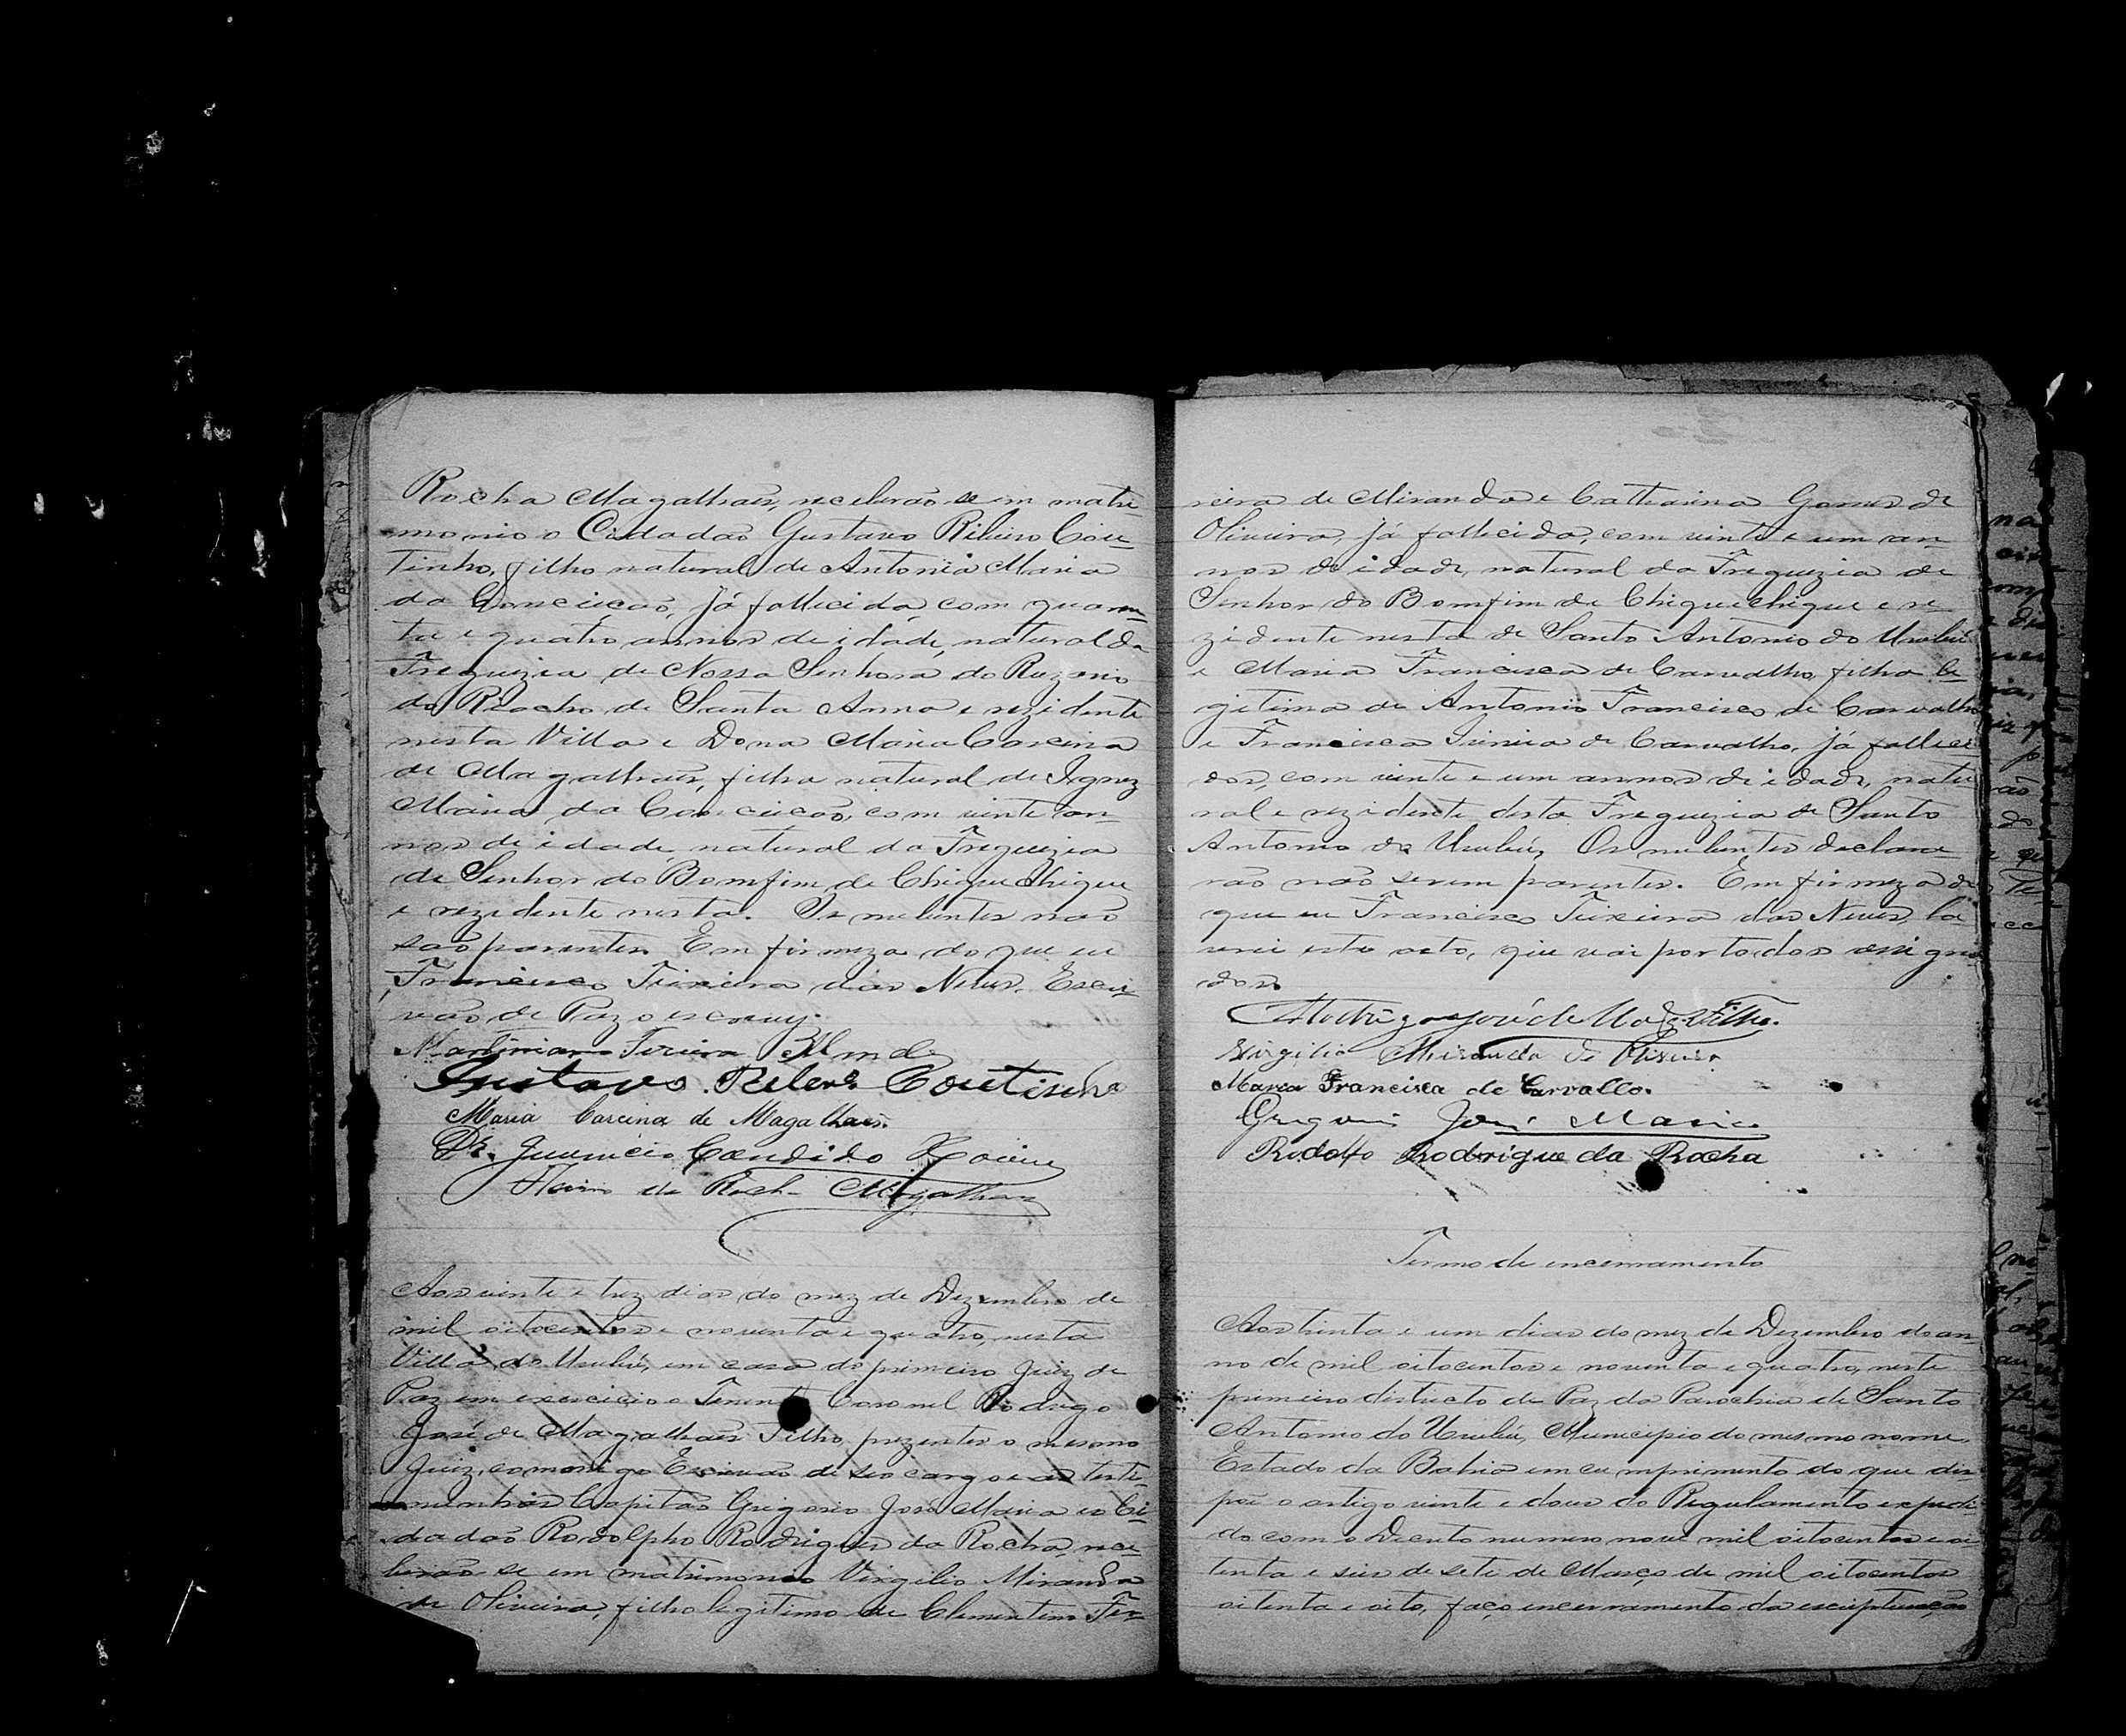 Rocha Magalhães, receberão se em matri-
monio o Cidadão Gustavo Ribeiro Cou-
tinho, filho natural de Antonia Maria
da Conceição, já fallecida, com quaren-
ta e quatro annos de idade, natural da
Freguezia de Nossa Senhora do Rozario
do Riacho de Santa Anna e rezidente
nesta Villa e Dona Maria Carcina
de Magalhães, filha natural de Ignez
Maria da Conceicão, com vinte an-
nos de idade, natural da Freguezia
de Senhor do Bomfim de Chique Chique
e rezidente nesta. Os nubentes não
são parentes. Em firmeza do que eu
Francisco Teixeira das Neves, Escri-
vão de Paz o escrevy.
Martiniano
Gustavo Ribero Coutinho
Maria Carcina de Magalhães.
Dr. Juvencio Candido
da Rocha Magalhães
Aos vinte e trez dias do mez de Dezembro de
mil oitocentos e noventa e quatro, nesta
Villa do Urubú, em casa do primeiro Juiz de
Paz em exercicio o Tenente Coronel Rodrigo
José de Magalhães Filho, prezentes o mesmo
Juiz, commigo Escrivão de seo cargo e as teste-
munhas Capitão Grigorio José Maria e o Ci-
dadão Rodolpho Rodrigues da Rocha, rece-
berão se em matrimonio Virgilio Miranda
de Oliveira, filho legitimo de Clementino Fer-
reira de Miranda e Catharina Gomes de
Oliveira, já fallecida, com vinte e um an-
nos de idade, natural da Freguezia de
Senhor do Bomfim de Chique chique e re-
zidente nesta de Santo Antonio do Urubú
e Maria Francisca de Carvalho, filha le-
gitima de Antonio Francisco de Carvalho
e Francisca de Carvalho, já falleci-
dos, com vinte e um annos de idade, natu-
ral e rezidente desta Freguezia de Santo
Antonio do Urubú. Os nubentes declara-
rão não serem parentes. Em firmeza do
que eu Francisco Teixeira das Neves, la-
vrei este acto, que vai por todos assigna-
dos.
Rodrigo José de Mag. Filho.
Virgilio Miranda de Oliveira
Maria Francisca de Carvallo.
Gregorio José Maria
Rodolfo Rodrigue da Rocha
Termo de encerramento
Aos trinta e um dias do mez de Dezembro do an-
no de mil oitocentos e noventa e quatro, neste
primeiro districto de Paz da Parochia de Santo
Antonio do Urubú, Municipio do mesmo nome,
Estado da Bahia em cumprimento do que dis-
põe o artigo vinte e dous do Regulamento expedi-
do com o Decreto numero nove mil oitocentos e oi-
tenta e seis de sete de Março de mil oitocentos
oitenta e oito, faço encerramento da escripturação